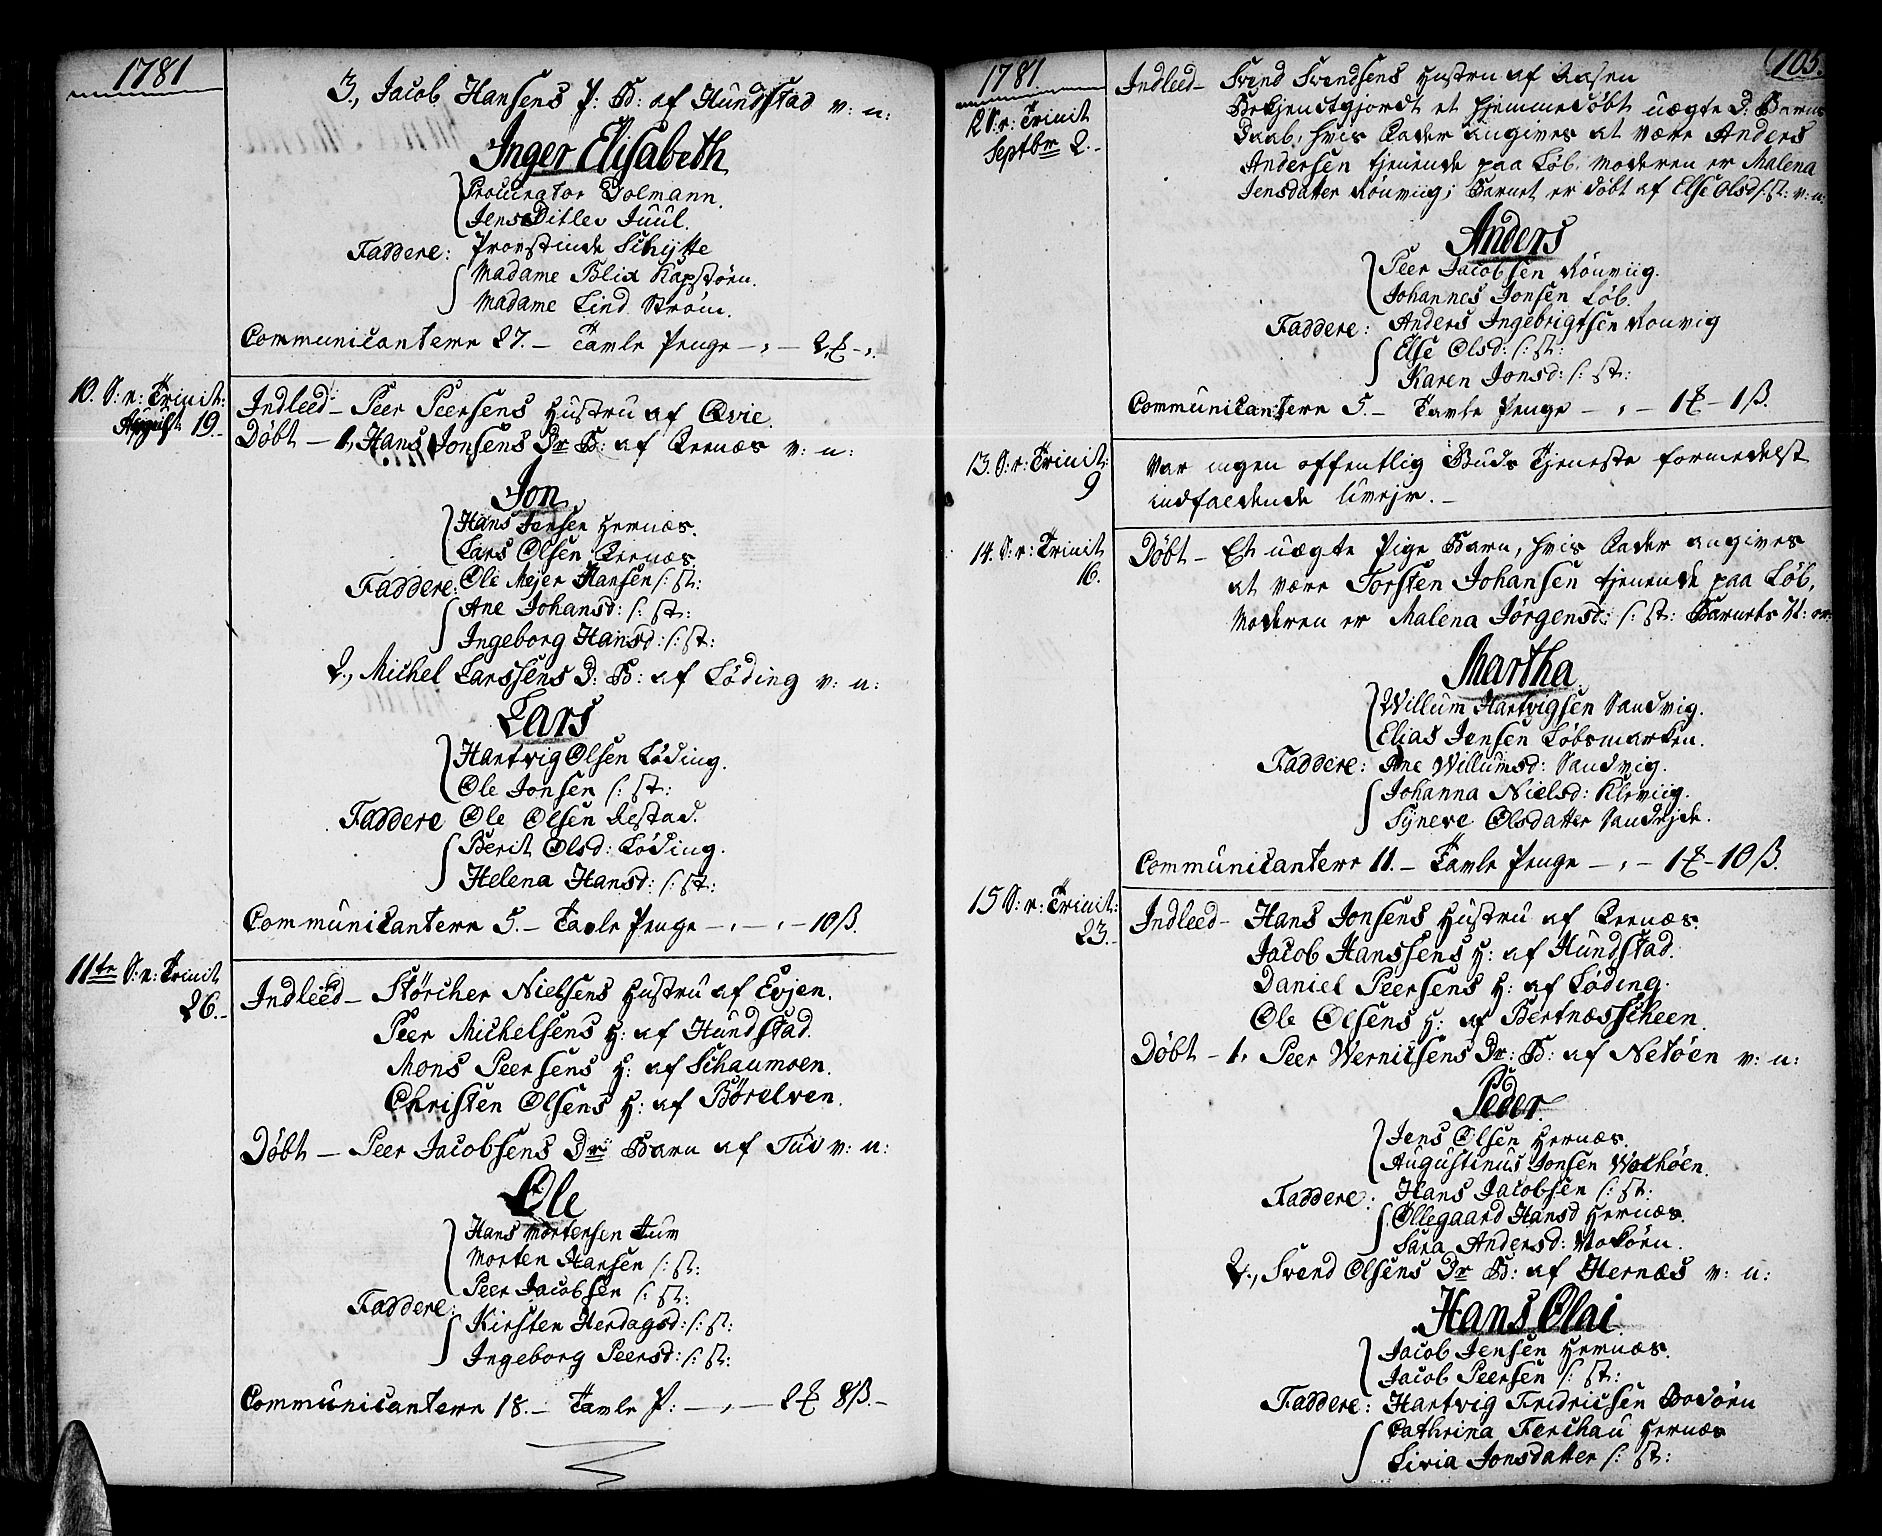 1781
3., Jacob Hansens P: B: af Hundstad v: n:
Inger Elisabeth
Procurator Dolmann.
Jens Ditlev Juul.
Faddere: Provstinde Schytte
Madame Blix Kapstøen.
Madame Lind Strøm.
Communicantere 27. – Tavle Penge – , –
10. S: e: Trinit:
August 19.
Indleed – Peer Peersens Hustru af Qvie.
Døbt – 1, Hans Jonsens Dr B: af Rernæs v: n:
Jon
Hans Jensen Hernæs.
Lars Olsen Rernæs.
Faddere: Ole Mejer Hansen /: st:
Ane Johansd: /: st:
Ingeborg Hansd: /: st:
2., Michel Larssens D: B: af Løding v: n:
Lars
Hartvig Olsen Løding.
Ole Jonsen /: st:
Faddere Ole Olsen Restad.
Berit Olsd: Løding.
Helena Hansd: /: st:
Communicantere 5. – Tavle Penge – , – , – 10 ß.
11te S: e: Trinit
26. –
Indleed – Størcher Nielsens Hustru af Evjen.
Peer Michelsens H: af Hundstad.
Mons Peersens H: af Schaumoen.
Christen Olsens H: af Børelven.
Døbt – Peer Jacobsens Dr Barn af Tuv v: n:
Ole
Hans Mortensen Tuv
Morten Hansen /: st:
Peer Jacobsen /: st:
Faddere:
Kirsten Herdagsd: /: st:
Ingeborg Peersd: /: st:
Communicantere 18. – Tavle P: – , – 2 ₰ 8 ß. –
105.
1781
12 S: e: Trinit
Septbr 2. –
Indleed – Svend Svendsens Hustru af Aasen
Bekjendtgjordt et hjemmedøbt uægte D: Barns
Daab, hvis Fader angives at være Anders
Andersen tjenende paa Løb. Moderen er Malena
Jensdatter Rønviig; Barnet er døbt af Else Olsd /: st: v: n:
Anders
Peer Jacobsen Rønviig.
Johannes Jonsen Løb.
Faddere: Anders Ingebrigtsen Rønvig
Else Olsd: /: st:
Karen Jonsd: /: st:
Communicantere 5. – Tavle Penge – , – 1 ₰ – 1 ß.
13. S: e: Trinit:
9
Var ingen offentlig Guds Tjeneste formedelst
indfaldende Uvejr. –
14. S: e: Trinit
16.
Døbt – Et uægte Pige Barn, hvis Fader angives
at være Torsten Johansen tjenende paa Løb,
Moderen er Malena Jørgensd: /: st: Barnets N: er:
Martha
Willum Hartvigsen Sandvig.
Elias Jensen Løbsmarken.
Faddere: Ane Willumsd: Sandvig.
Johanna Nielsd: Kleviig.
Syneve Olsdatter Sandhjde.
Communicantere 11. – Tavle Penge – , – 1 ₰ – 10 ß.
15 S: e: Trinit:
23. –
Indleed – Hans Jonsens Hustru af Rernæs.
Jacob Hanssens H: af Hundstad.
Daniel Peersens H: af Løding.
Ole Olsens H: af Bertnæsscheen.
Døbt – 1. Peer Wernicsens Dr: B: af Netøen v: n:
Peder.
Jens Olsen Hernæs.
Augustinus Jonsen Wachøen.
Faddere: Hans Jacobsen /: st:
Ollegaard Hansd Hernæs.
Sara Andersd: Vokøen.
2., Svend Olsens Dr B: af Hernæs v: n:
Hans Olai
Jacob Jensen Hernæs.
Jacob Peersen /: st:
Faddere: Hartvig Fridricsen Bodøen
Cathrina Ferchau Hernæs
Livia Jonsdatter /: st: